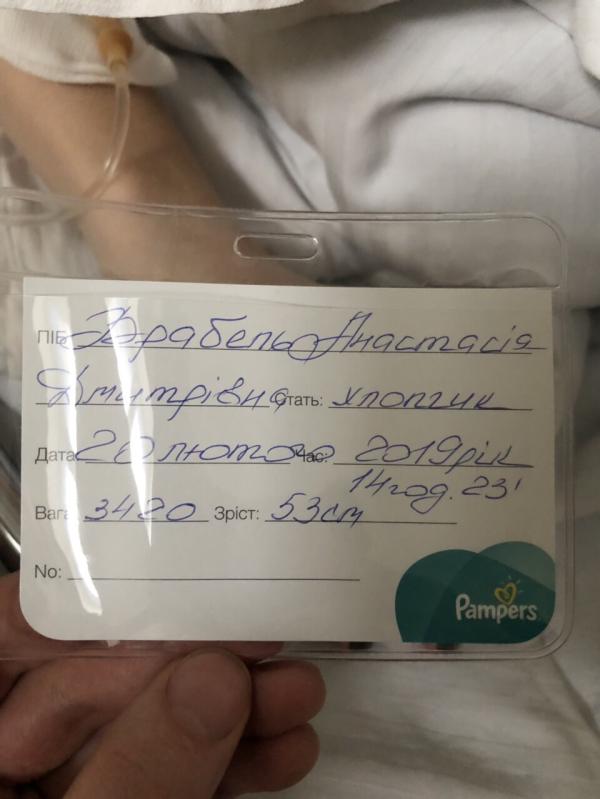 ПІБ Анастасія
Дмитрівна Стать: хлопчик
Дата 20 лютого Час: 2019 рік
14 год. 23'
Вага 3420 Зріст: 53 см
No:
Pampers